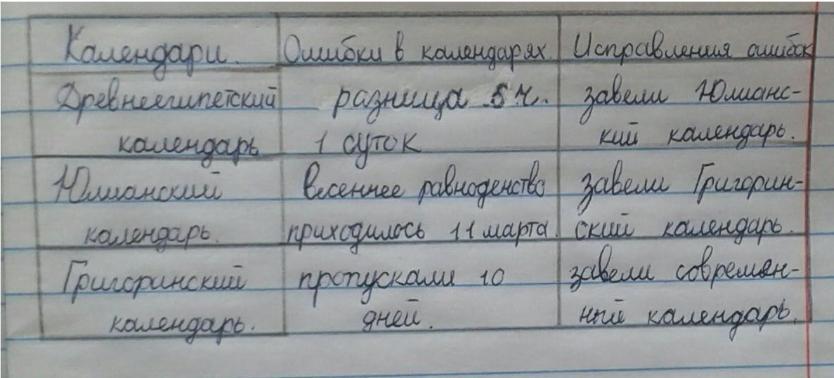 Календари. Ошибки в календарях. Исправления ошибок
Древнеегипетский разница 5 ч. завели Юлианс-
календарь 1 суток кий календарь.
Юлианский весеннее равноденство завели Григорин-
календарь. приходилось 11 марта. ский календарь.
Григоринский пропускали 10 завели современ-
календарь. дней. ный календарь.